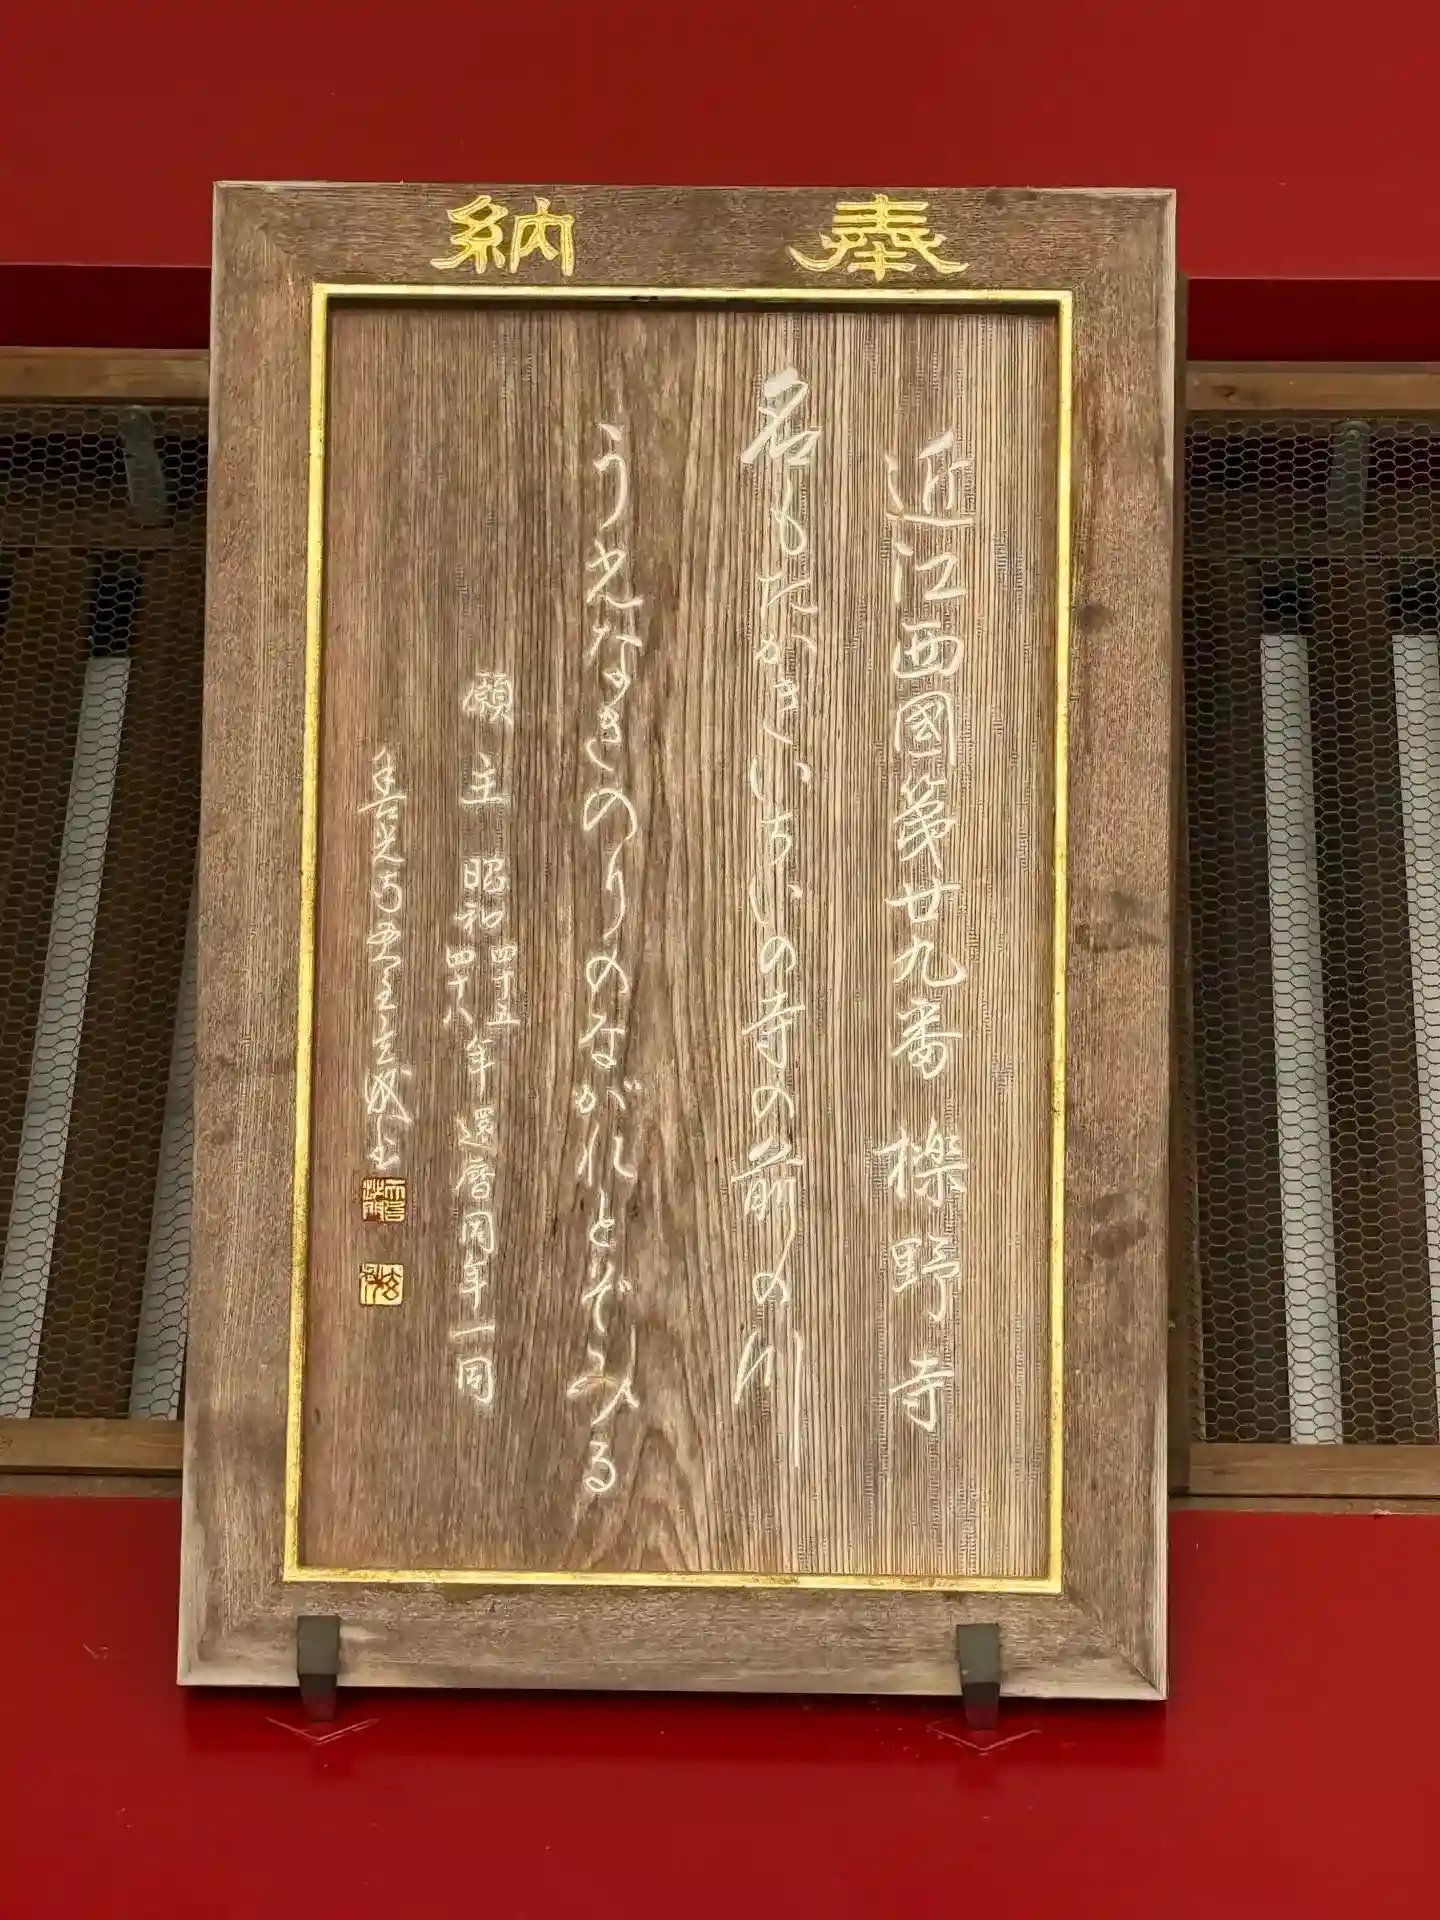 奉納
近江西國第廿九番 櫟野寺
名もたかきいちいの寺の前の川
うえなきのりのながれとぞみる
願主 昭和四十五四十八年還暦同年一同